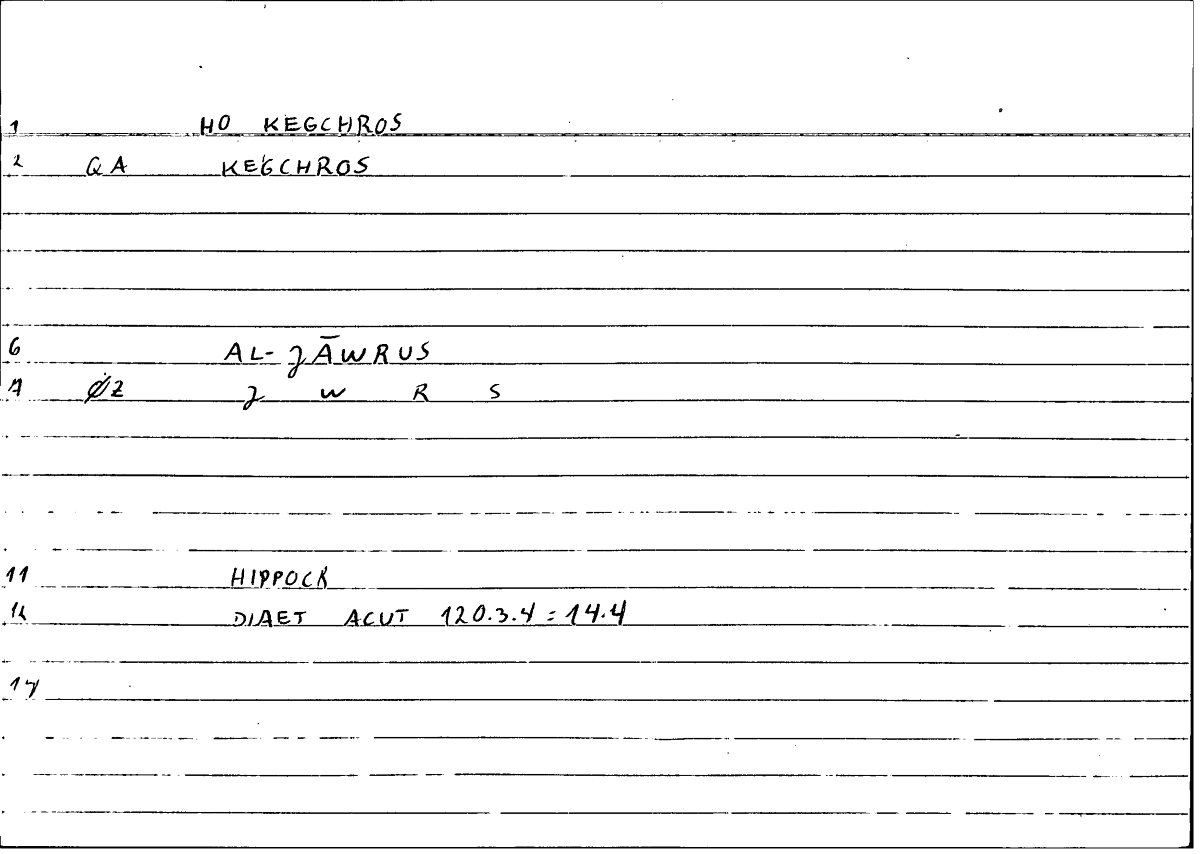 1 HO KEGCHROS
2 QA KEGCHROS
6 AL-ǧĀWRUS
7 ØZ ǧ W R S
11 HIPPOCR
12 DIAET ACUT 120.3.4 = 14.4
17